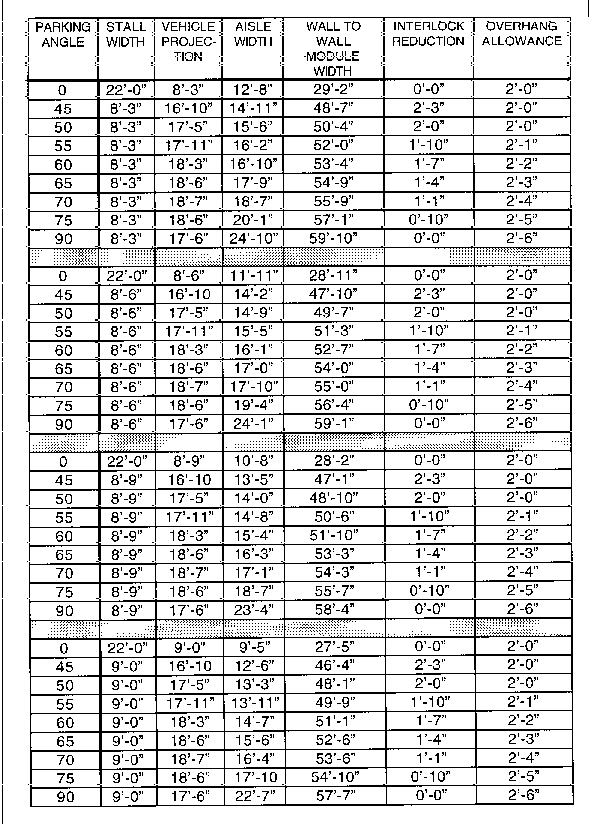 PARKING STALL VEHICLE AISLE WALL TO INTERLOCK OVERHANG
ANGLE WIDTH PROJEC- WIDTH WALL REDUCTION ALLOWANCE
TION -MODULE
WIDTH
0 22'-0" 8'-3" 12'-8" 29'-2" 0'-0" 2'-0"
45 8'-3" 16'-10" 14'-11" 48'-7" 2'-3" 2'-0"
50 8'-3" 17'-5" 15'-6" 50'-4" 2'-0" 2'-0"
55 8'-3" 17'-11" 16'-2" 52'-0" 1'-10" 2'-1"
60 8'-3" 18'-3" 16'-10" 53'-4" 1'-7" 2'-2"
65 8'-3" 18'-6" 17'-9" 54'-9" 1'-4" 2'-3"
70 8'-3" 18'-7" 18'-7" 55'-9" 1'-1" 2'-4"
75 8'-3" 18'-6" 20'-1" 57'-1" 0'-10" 2'-5"
90 8'-3" 17'-6" 24'-10" 59'-10" 0'-0" 2'-6"
0 22'-0" 8'-6" 11'-11" 28'-11" 0'-0" 2'-0"
45 8'-6" 16'-10 14'-2" 47'-10" 2'-3" 2'-0"
50 8'-6" 17'-5" 14'-9" 49'-7" 2'-0" 2'-0"
55 8'-6" 17'-11" 15'-5" 51'-3" 1'-10" 2'-1"
60 8'-6" 18'-3" 16'-1" 52'-7" 1'-7" 2'-2"
65 8'-6" 18'-6" 17'-0" 54'-0" 1'-4" 2'-3"
70 8'-6" 18'-7" 17'-10" 55'-0" 1'-1" 2'-4"
75 8'-6" 18'-6" 19'-4" 56'-4" 0'-10" 2'-5"
90 8'-6" 17'-6" 24'-1" 59'-1" 0'-0" 2'-6"
0 22'-0" 8'-9" 10'-8" 28'-2" 0'-0" 2'-0"
45 8'-9" 16'-10 13'-5" 47'-1" 2'-3" 2'-0"
50 8'-9" 17'-5" 14'-0" 48'-10" 2'-0" 2'-0"
55 8'-9" 17'-11" 14'-8" 50'-6" 1'-10" 2'-1"
60 8'-9" 18'-3" 15'-4" 51'-10" 1'-7" 2'-2"
65 8'-9" 18'-6" 16'-3" 53'-3" 1'-4" 2'-3"
70 8'-9" 18'-7" 17'-1" 54'-3" 1'-1" 2'-4"
75 8'-9" 18'-6" 18'-7" 55'-7" 0'-10" 2'-5"
90 8'-9" 17'-6" 23'-4" 58'-4" 0'-0" 2'-6"
0 22'-0" 9'-0" 9'-5" 27'-5" 0'-0" 2'-0"
45 9'-0" 16'-10 12'-6" 46'-4" 2'-3" 2'-0"
50 9'-0" 17'-5" 13'-3" 48'-1" 2'-0" 2'-0"
55 9'-0" 17'-11" 13'-11" 49'-9" 1'-10" 2'-1"
60 9'-0" 18'-3" 14'-7" 51'-1" 1'-7" 2'-2"
65 9'-0" 18'-6" 15'-6" 52'-6" 1'-4" 2'-3"
70 9'-0" 18'-7" 16'-4" 53'-6" 1'-1" 2'-4"
75 9'-0" 18'-6" 17'-10 54'-10" 0'-10" 2'-5"
90 9'-0" 17'-6" 22'-7" 57'-7" 0'-0" 2'-6"